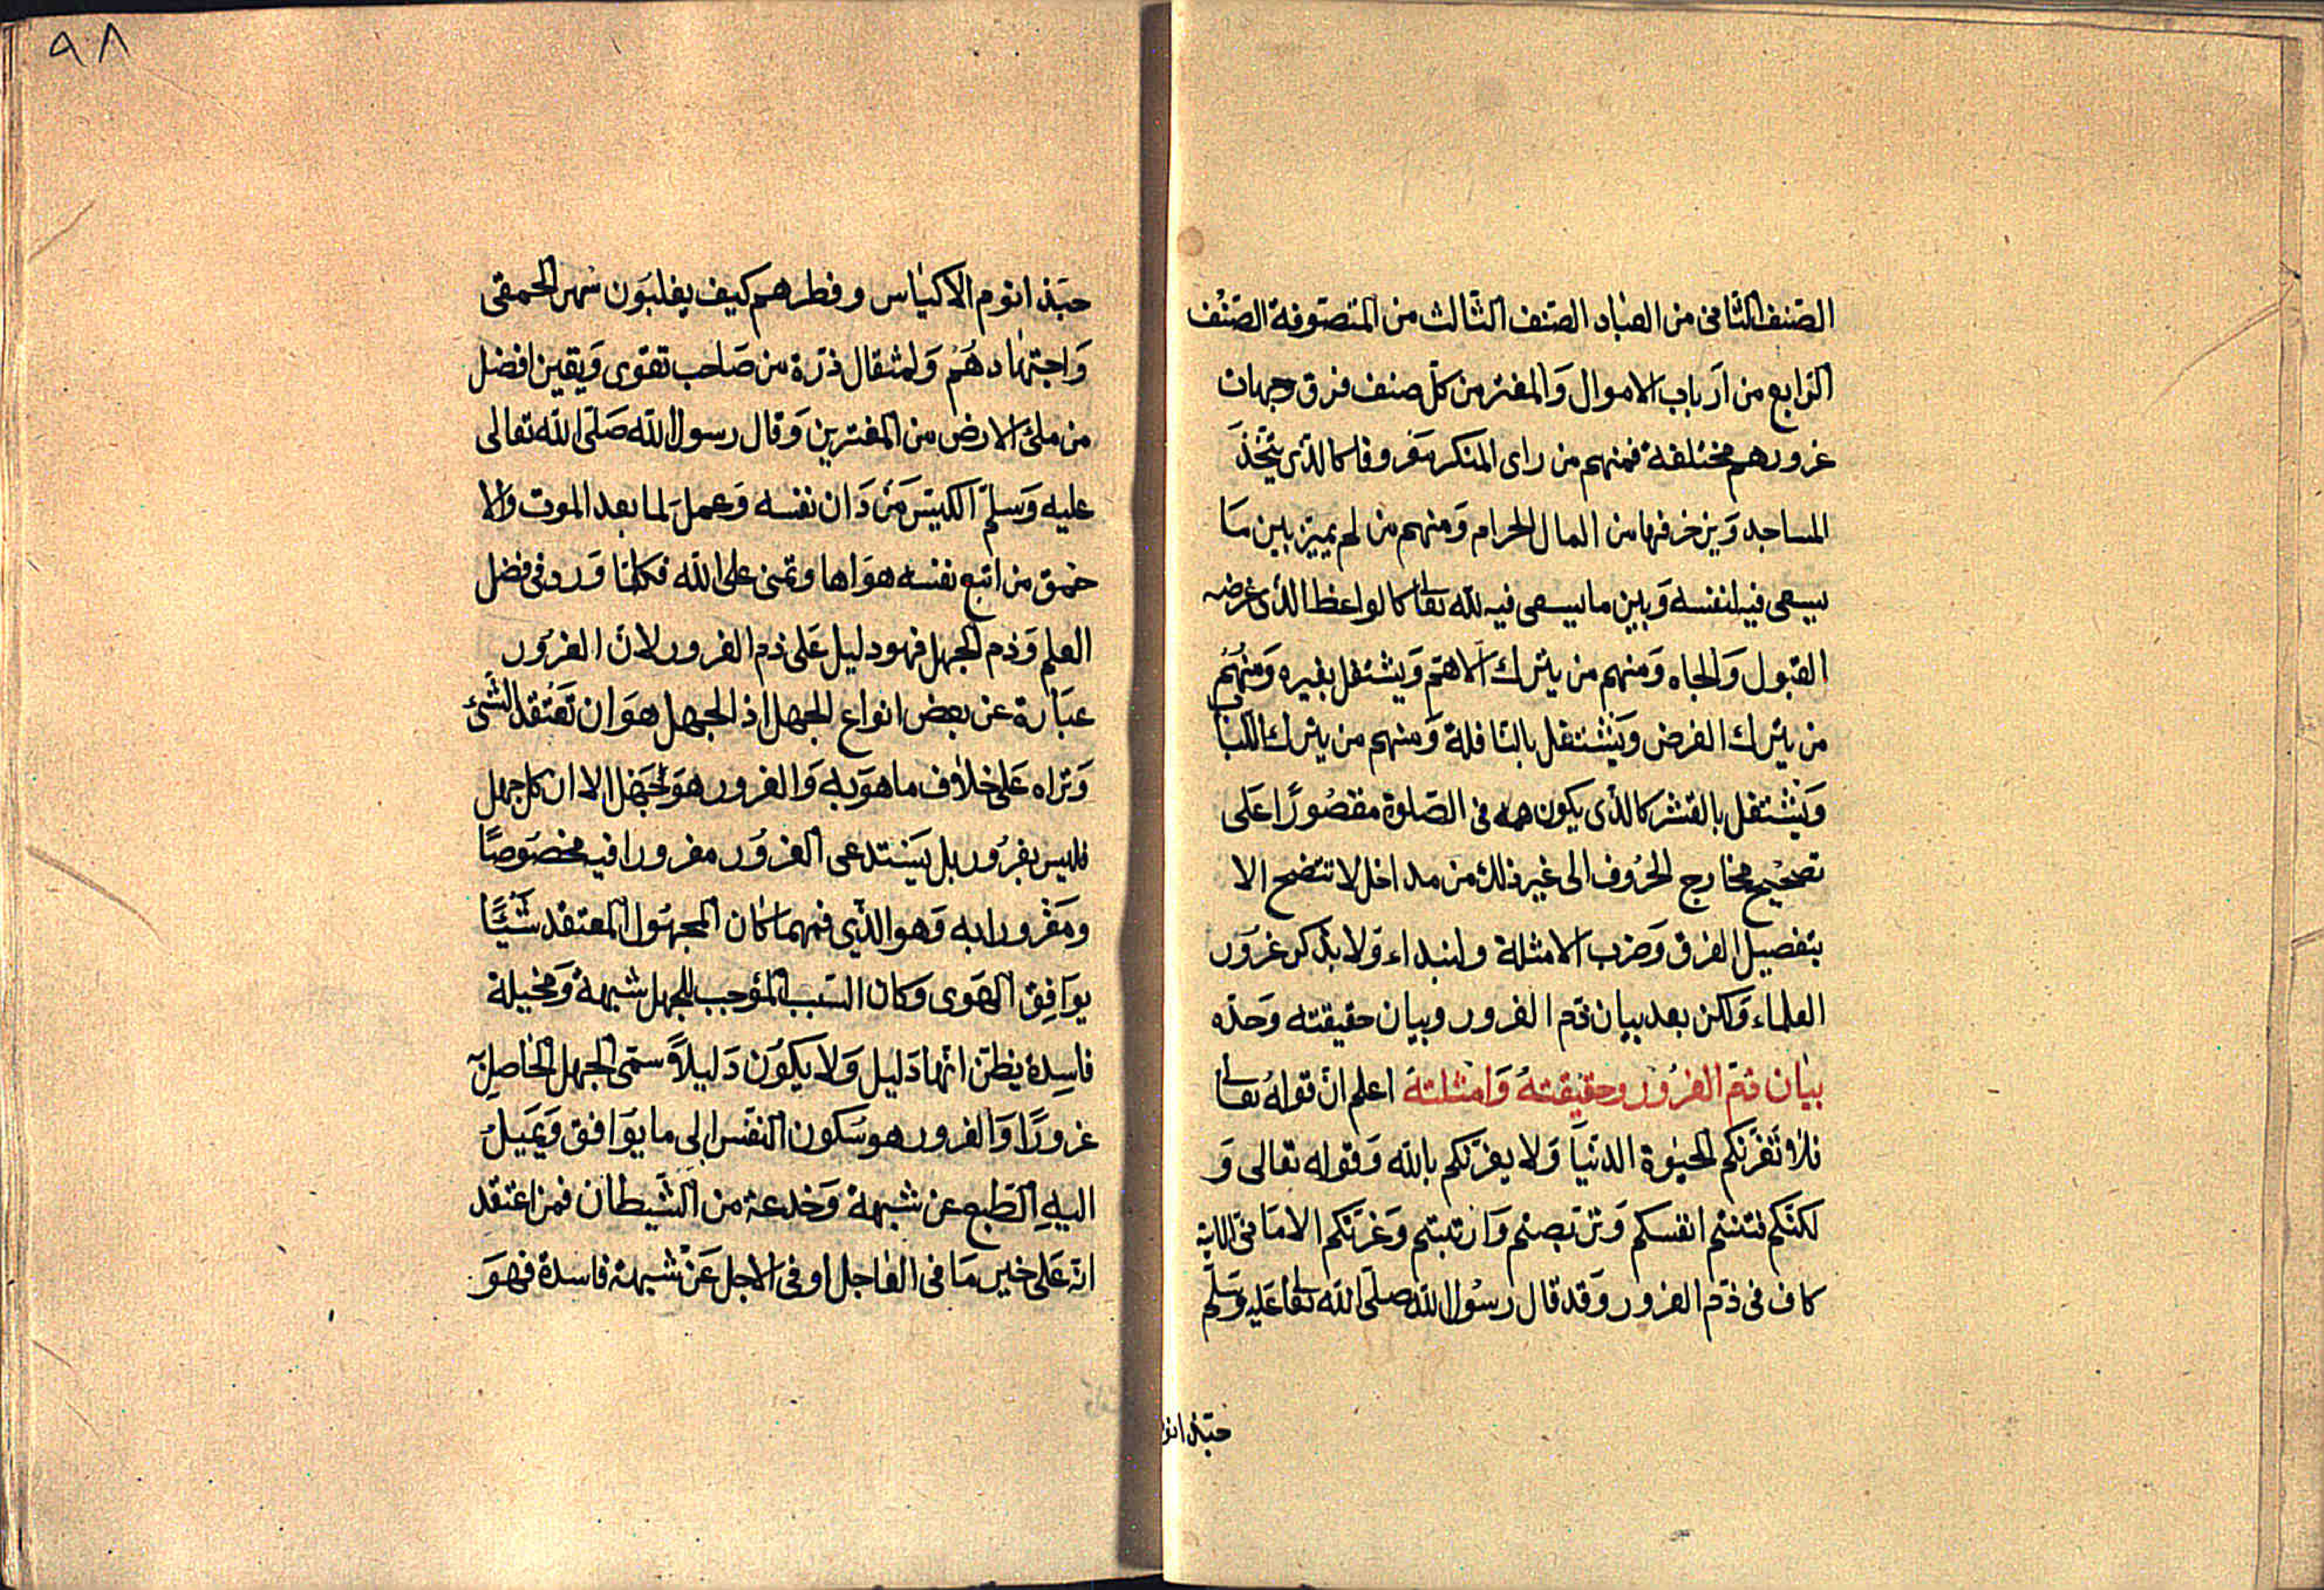 الصّنف الثّانى من العبّاد الصّنف الثّالث من المتصوّفة الصّنف
الرّابع من ارباب الاموال وَالمغتر من كلّ صنف فرق وجهات
غرورهم مختلفة فمنهم من راى المنكر مَعروفا كالذى يتّخذ
المساجد وَيزخرفها من المال الحرام وَمنهم من لم يميّز بين مَا
يسعى فيه لنفسه وَبين ما يسعى فيه لله تعا كالواعظ الذى غرضه
القبول وَالجاه وَمنهم من يترك الاهمّ وَيشتغل بغيره وَمنهُم
من يترك الفرض وَيشتغل بالنّافلة وَمنهم من يترك اللّباب
وَيشتغل بالقشر كالذى يكون همه فى الصّلوة مقصُورًا عَلى
تصحيح مخارج الحرُوف الى غير ذلك من مداخل لا تتضح الا
بتفصيل الفرق وَضرب الامثلة ولنبداء وَلا بذكر غرَور
العلماء وَلكن بعد بيان ذمّ الغرور وبيان حقيقته وَحدّه
بيَان ذمّ الغرُور وحقيقتهُ وَامثلتهَ اعلم انّ قولهُ تعا
فلا تَغرّنكم الحيٰوة الدنيَا وَلا يغرّنكم بالله وَقوله تعالى وَ
لكنّكم فتنتم انفسكم وَتربّصتم وَارتبتم وَغرّتكم الامَانى الاية
كاف فى ذمّ الغرور وَقد قال رسُول الله صلّى الله تعا عَليه وَسَلّم
حبّذ انو
٩٨
حبَّذ انوم الاكيَاس وفطرهم كيف يغلبَون سَهر الحمقى
وَاجتهَادهُم وَلمثقال ذرّة من صَاحب تقوى وَيقين افضل
من ملئ الارض من المغترين وَقال رسول الله صَلّى الله تعالى
عليه وَسَلّم الكيّس مَن دَان نفسه وَعمل لما بعد الموت والا
حمق من اتبع نفسه هوَاها وتمنى على الله فكلما وَرد فى فضل
العلم وَذم الجهل فهو دليل عَلى ذم الغرور لانّ الغرُور
عبَارة عن بعض انواع الجهل اذ الجهل هوَ ان تَعتقد الشّئ
وَتراه عَلى خلاف ما هوَ به وَالغرور هوَ جَهل الا ان كل جهل
فليس بغرُور بل يَستدعى الغرَور مغرورا فيه مخصَوصًا
ومَغرورا به وَهو الذّى فمهما كان المجهُول المعتقد شَيًا
يوَافِق الهَوى وَكان السّبب المؤجب للجهل شبهة وَمخيلة
فاسِدة يظنّ انّها دَليل وَلا يكوُن دَليلاً سمّى الجهل الحَاصل به
غرورًا وَالغرور هو سكون النفس الى ما يوَافق وَيَميلُ
اليهِ الطّبع عن شبهة وَخدعة من الشّيطان فمن اعتقد
انّه عَلى خير مَا فى العَاجل او فى الاجل عَنْ شبهة فاسدة فهوَ